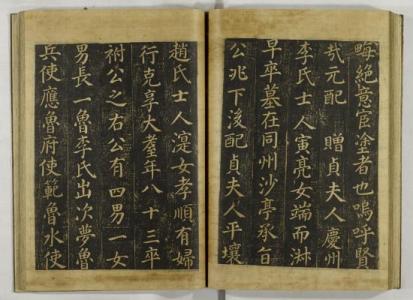 晦絶意宦塗者也嗚呼賢
哉元配 贈貞夫人慶州
李氏士人寅亮女端而淑
早卒墓在同州沙亭丞自
公兆下後配貞夫人平壤
趙氏士人寔女孝順有婦
行克享大耋年八十三卒
祔公之右公有四男一女
男長一魯李氏出次夢魯
兵使應魯府使範魯水使